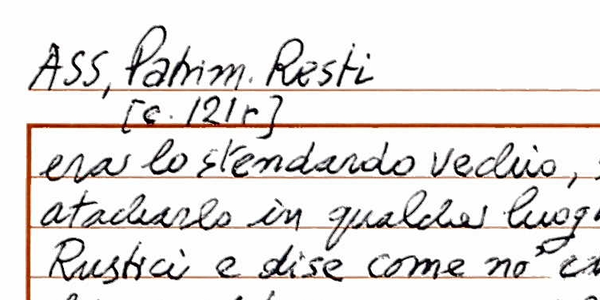 ASS, Patrim. Resti
[c. 121r]
era lo stendardo vechio,
atacharlo in qualche luog
Rustici e dise come no